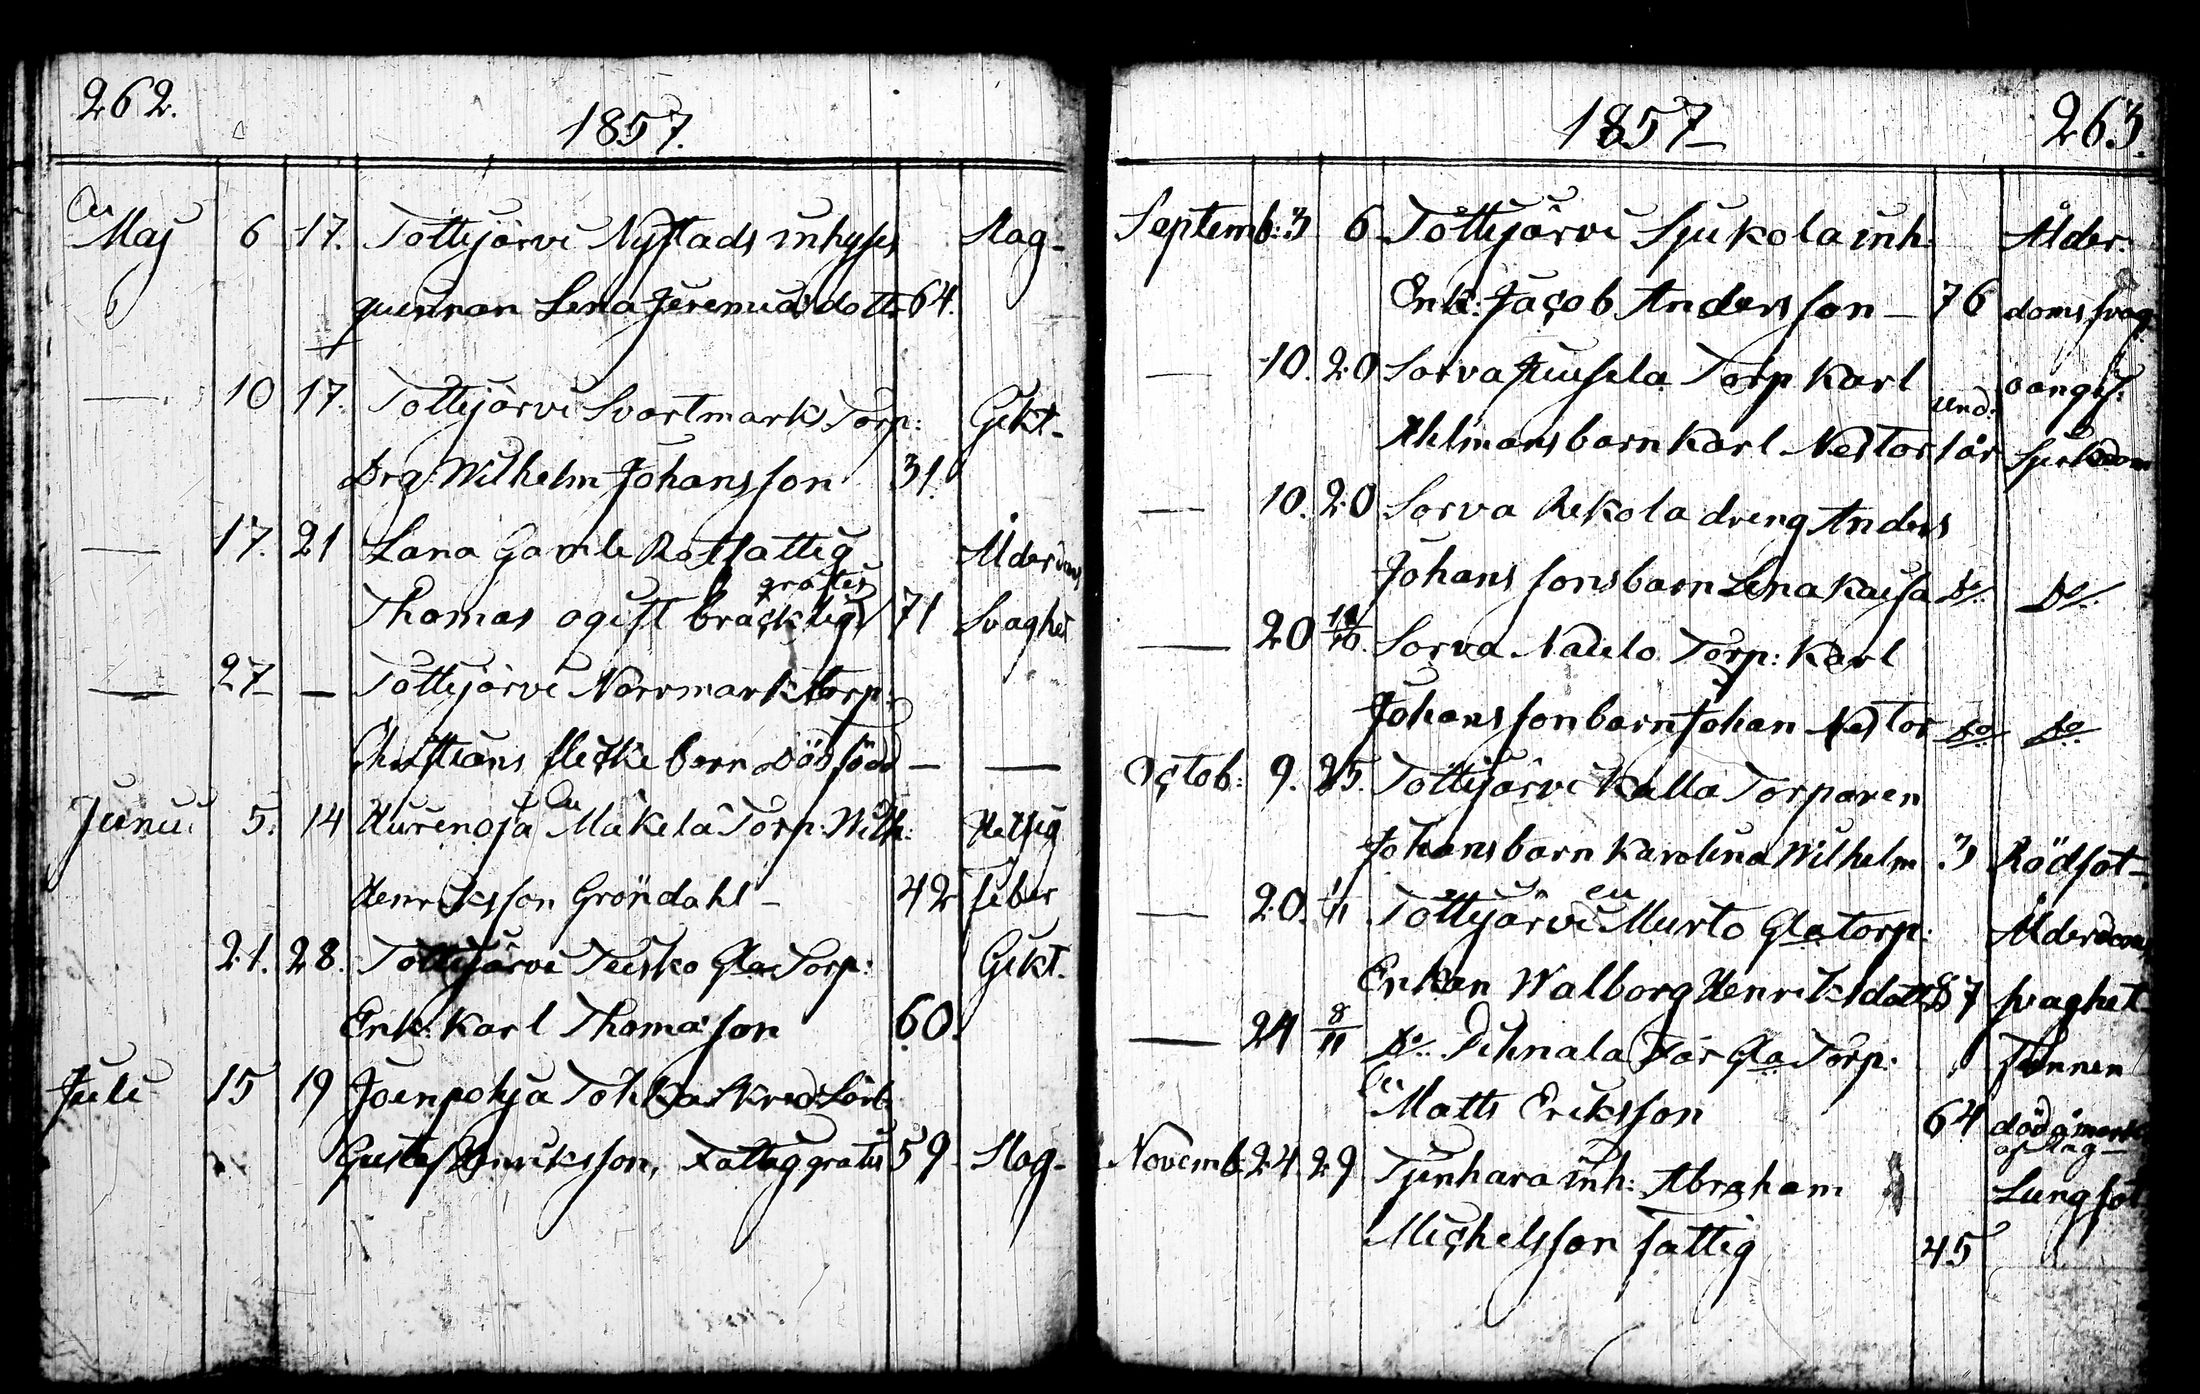 262.
1857.
Maj 6 17. Tottijärvi Nystads inhyses Slag-
quinnan Lena Jeremiædotter 64.
— 10 17. Tottijärvi Svartmark Torp: Gikt-
Drg: Wilhelm Johansson 31.
— 17. 21 Lana Gamle Rotfattig Ålderdoms
gratis
Thomas ogift bräcklig 71 Svaghet
— 27 — Tottijärvi Norrmark torp:
Christians flicke barn dödfödd — —
Junii 5. 14 Hurenoja Mäkelä Torp: Wilh: Hetsig
Henriksson Gröndahl - 42 feber
21. 28. Tottijärvi Teisko Gla Torp: Gikt.
Enk: Karl Thomasson 60.
Juli 15 19 Joenpohja Tohka Skräd: Lärl:
Gustaf Henriksson, Fattig gratis 59 Slag-
1857- 263.
Septemb: 3 6 Tottijärvi Sjukola inh: Ålder:
Enk: Jacob Andersson — 76 doms svag
— 10. 20 Sorva Juusela Torp Karl oangif:
und:
Ahlmans barn Karl Nestor 1 år Sjukdom
— 10. 20 Sorva Rekola dreng Anders
Johanssons barn Lena Kaisa Do. Do.
— 20 Sorva Torp: Karl
Johansson barn Johan Nestor Do Do
Octob: 9. 25. Tottijärvi Kalla Torparen
Johans barn Karolina Wilhelm 3 Rödsot-
— 20. 1/11 Tottijärvi Murto Gla torp: Ålderdoms
Enkan Walborg Henriksdotter 87 svaghet
— 24 8/11 Do. Gla Torp: funnen
Matts Eriksson 64 död å marken
af slag—
Novemb: 24. 29 inh: Abraham Lungsot
Michelsson fattig 45